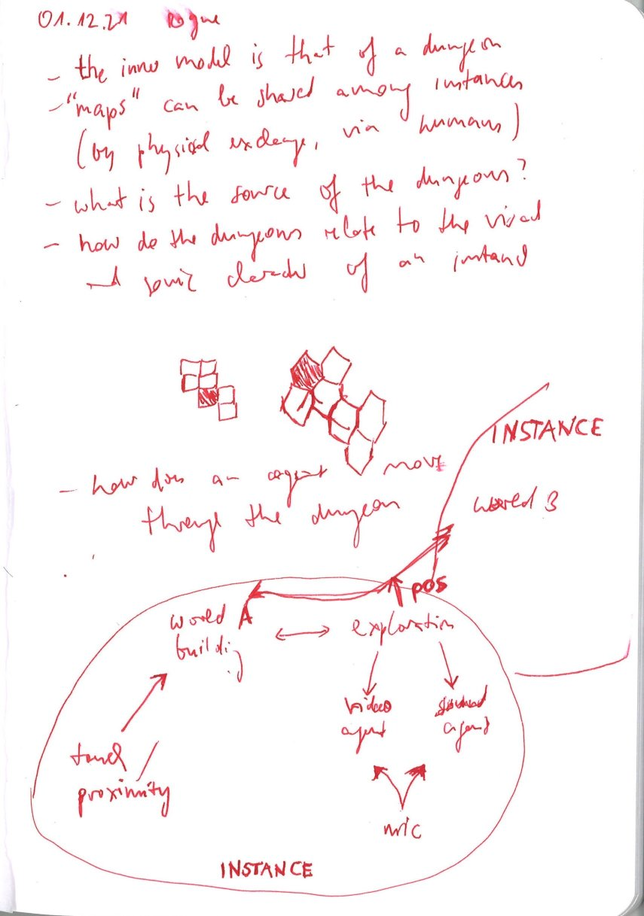 01.12.21 rogue
- the inner model is that of a dungeon
- "maps" can be shared among instances
(by physical exchange, via humans)
- what is the source of the dungeons?
- how do the dungeons relate to the visual
and sonic character of an instance
- how does an agent move
through the dungeon
INSTANCE
world B
pos
world A
building
exploration
video
agent
sound
agent
touch /
proximity
mic
INSTANCE